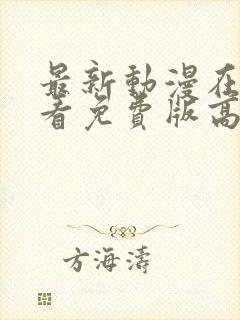 最新動漫在
看免費版高
方海濤